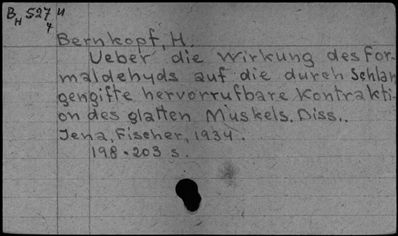 BH 527 4
4
Bernkopf, H.
Ueber die Wirkung des For-
maldehyds auf die durch Schlan
gengifte hervorrufbare Kontrakti-
on des glatten Muskels. Diss..
Jena, Fischer, 1934.
198-203 s.